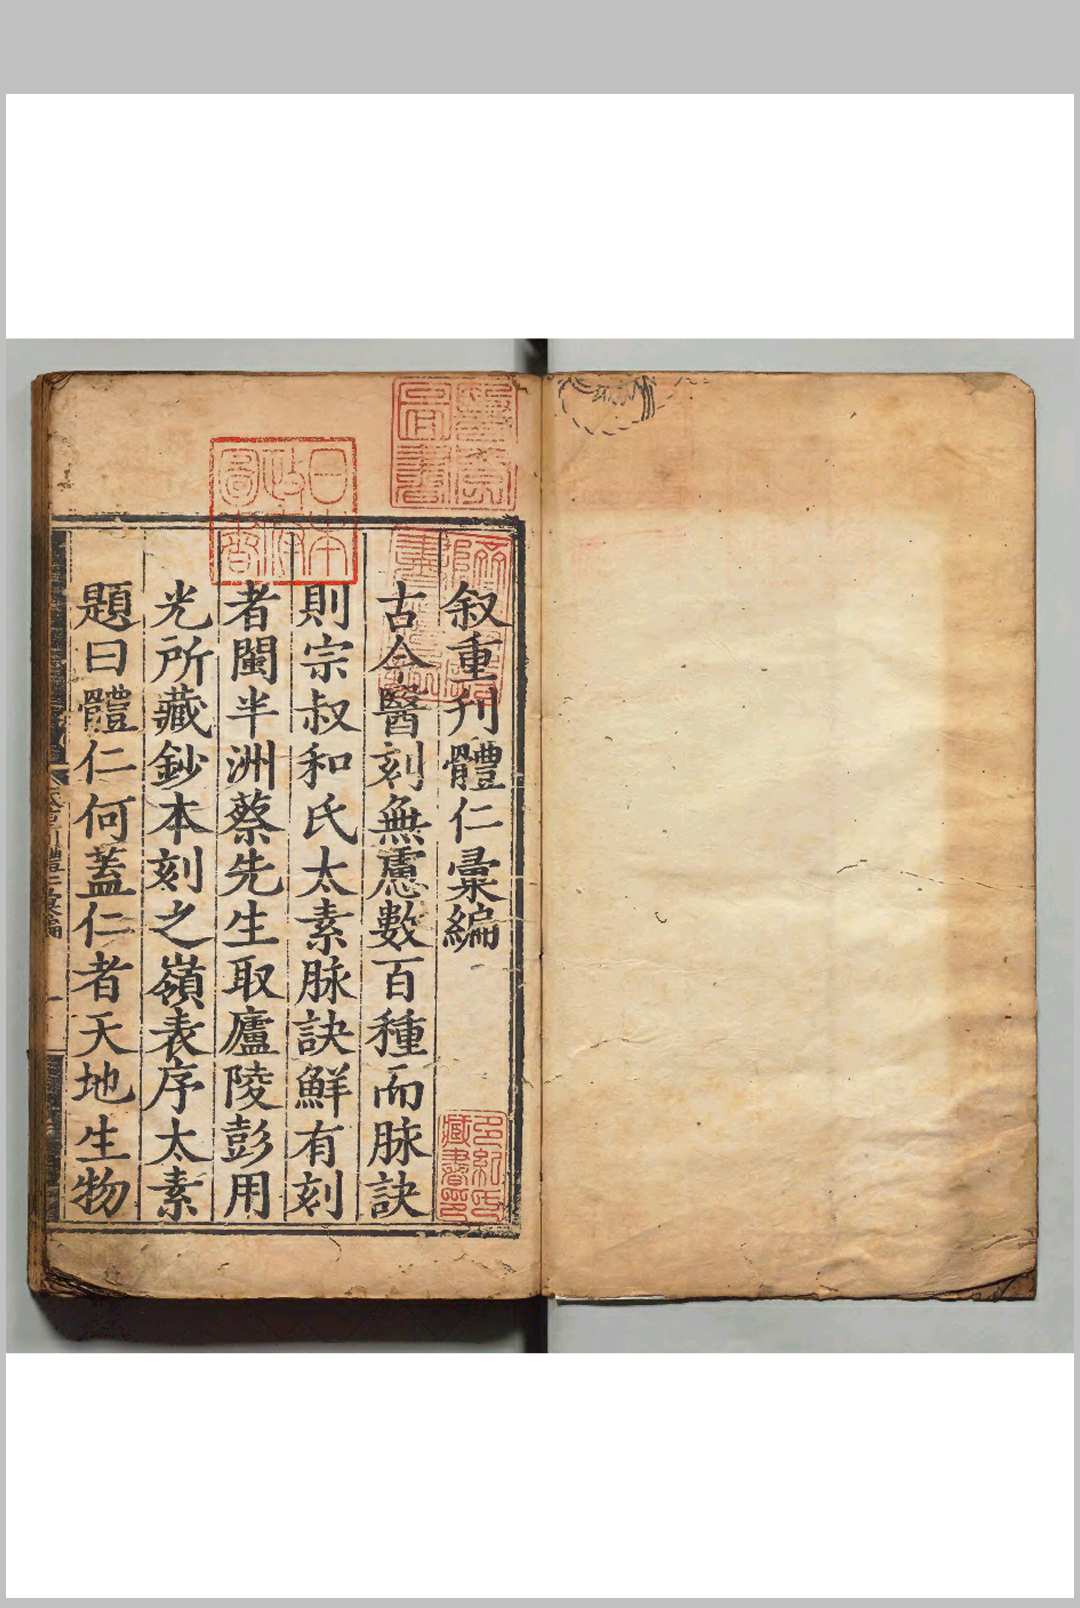 叙重刊體仁彙編
古今醫刻無慮數百種而脉訣
則宗叔和氏太素脉訣鮮有刻
者閩半洲蔡先生取廬陵彭用
光所藏鈔本刻之嶺表序太素
題曰體仁何蓋仁者天地生物
日本
政府
圖書